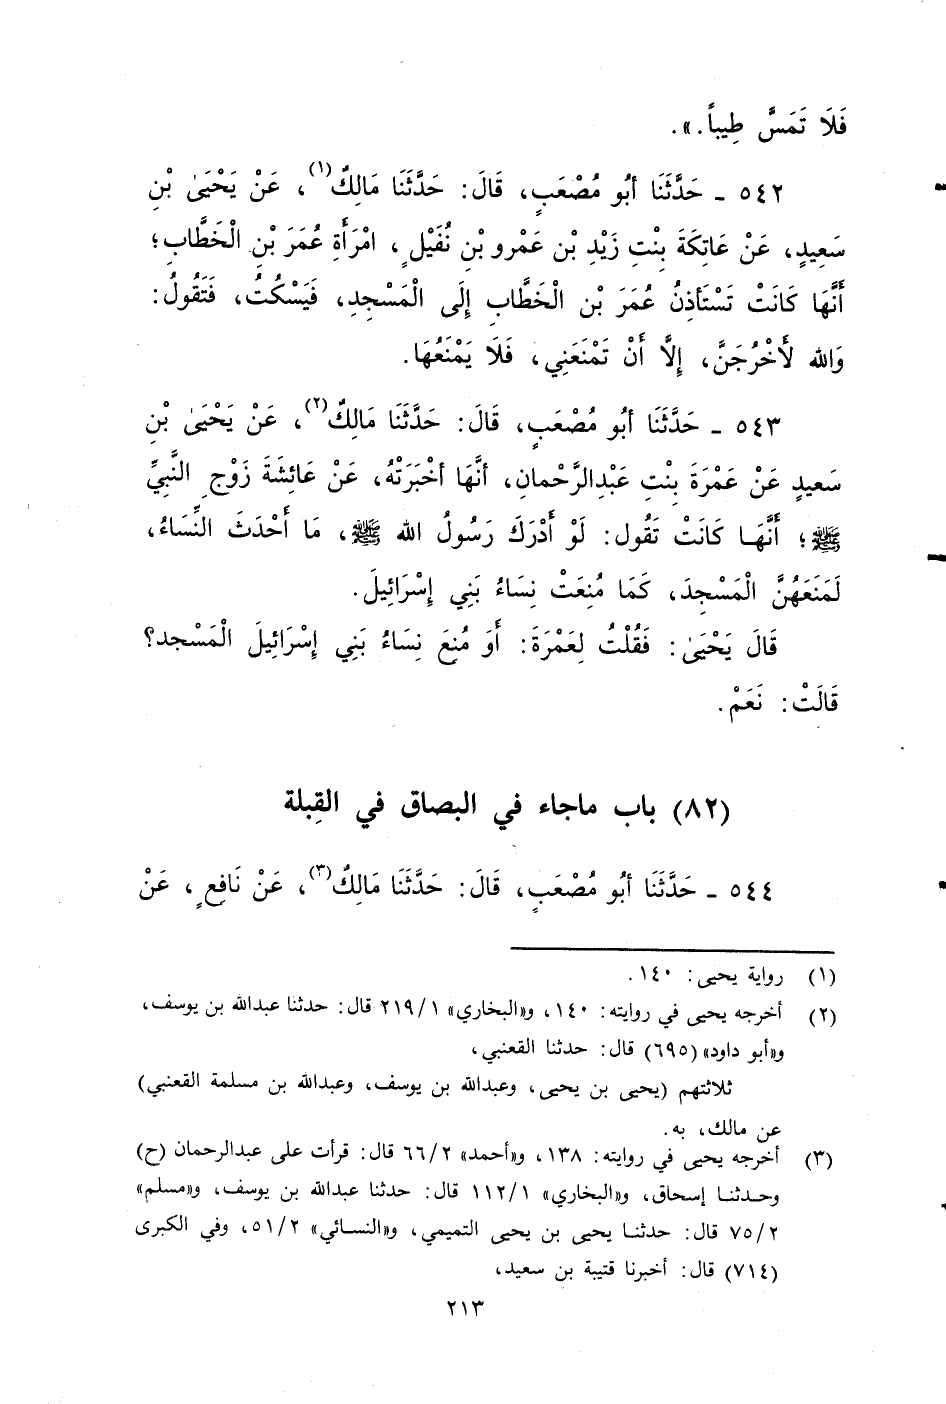 فَلَا تَمَسَّ طِيباً.».
٥٤٢ ـ حَدَّثَنَا أبُو مُصْعَبٍ، قَالَ: حَدَّثَنَا مَالِكٌ(١)، عَنْ يَحْيَىٰ بْنِ
سَعِيدٍ، عَنْ عَاتِكَةَ بِنْتِ زَيْدِ بْنِ عَمْرِو بْنِ نُفَيْلٍ، امْرَأَةِ عُمَرَ بْنِ الْخَطَّابِ؛
أَنَّهَا كَانَتْ تَسْتَأْذِنُ عُمَرَ بْنَ الْخَطَّابِ إِلَى الْمَسْجِدِ، فَيَسْكُتُ، فَتَقُولُ:
وَالله لَأَخْرُجَنَّ، إِلَّا أَنْ تَمْنَعَنِي، فَلَا يَمْنَعُهَا.
٥٤٣ ـ حَدَّثَنَا أبُو مُصْعَبٍ، قَالَ: حَدَّثَنَا مَالِكٌ(٢)، عَنْ يَحْيَىٰ بْنِ
سَعِيدٍ عَنْ عَمْرَةَ بِنْتِ عَبْدِالرَّحْمانِ، أنَّهَا أخْبَرَتْهُ، عَنْ عَائِشَةَ زَوْجِ النَّبِيِّ
ﷺ؛ أَنَّهَا كَانَتْ تَقُول: لَوْ أَدْرَكَ رَسُولُ الله ﷺ، مَا أَحْدَثَ النِّسَاءُ،
لَمَنَعَهُنَّ الْمَسْجِدَ، كَمَا مُنِعَتْ نِسَاءُ بَنِي إِسْرَائِيلَ.
قَالَ يَحْيَىٰ: فَقُلْتُ لِعَمْرَةَ: أَوَ مُنِعَ نِسَاءُ بَنِي إِسْرَائِيلَ الْمَسْجد؟
قَالَتْ: نَعَمْ.
(٨٢) باب ماجاء في البصاق في القِبلة
٥٤٤ ـ حَدَّثَنَا أبُو مُصْعَبٍ، قَالَ: حَدَّثَنَا مَالِكٌ(٣)، عَنْ نَافِعٍ، عَنْ
(١) رواية يحيى: ١٤٠.
(٢) أخرجه يحيى في روايته: ١٤٠، و«البخاري» ٢١٩/١ قال: حدثنا عبدالله بن يوسف،
و«أبو داود» (٦٩٥) قال: حدثنا القعنبي،
ثلاثتهم (يحيى بن يحيى، وعبدالله بن يوسف، وعبدالله بن مسلمة القعنبي)
عن مالك، به.
(٣) أخرجه يحيى في روايته: ١٣٨، و«أحمد» ٦٦/٢ قال: قرأت على عبدالرحمان (ح)
وحدثنا إسحاق، و«البخاري» ١١٢/١ قال: حدثنا عبدالله بن يوسف، و«مسلم»
٧٥/٢ قال: حدثنا يحيى بن يحيى التميمي، و«النسائي» ٥١/٢، وفي الكبرى
(٧١٤) قال: أخبرنا قتيبة بن سعيد،
٢١٣